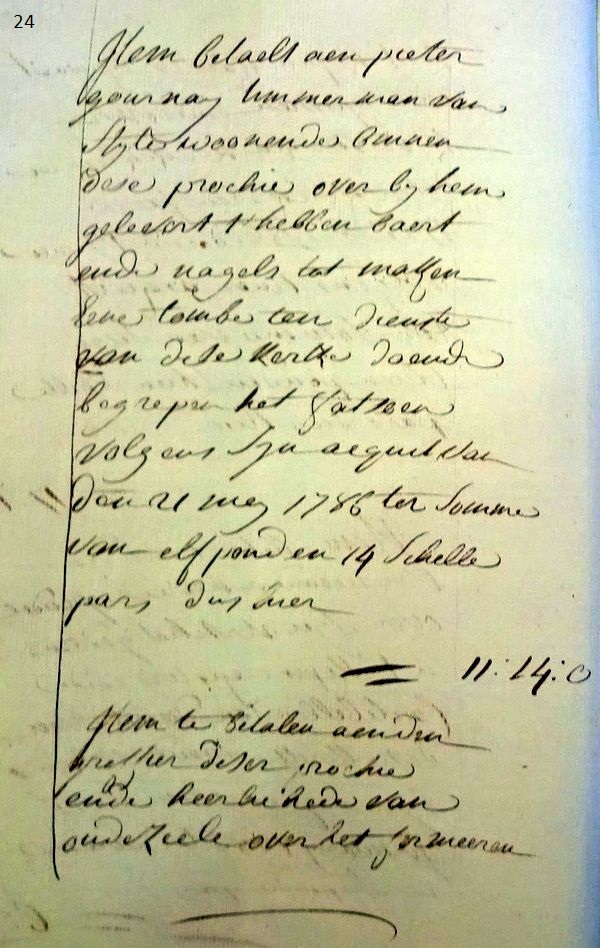 24
Item betaelt aen pieter
gournay timmerman van
Style woonende binnen
dese prochie over by hem
gelevert t hebben baert
ende nagels tot maken
eene tombe ten dienste
van dese kercke daende
begrepen het fatsoen
volgens syn acquit van
den 21 mey 1786 ter somme
van elf ponden 14 schelle
pars dus hier
11:14:0
Item te betalen aen den
greffier deser prochie
ende heerlichede van
oudezeele over het formeeren